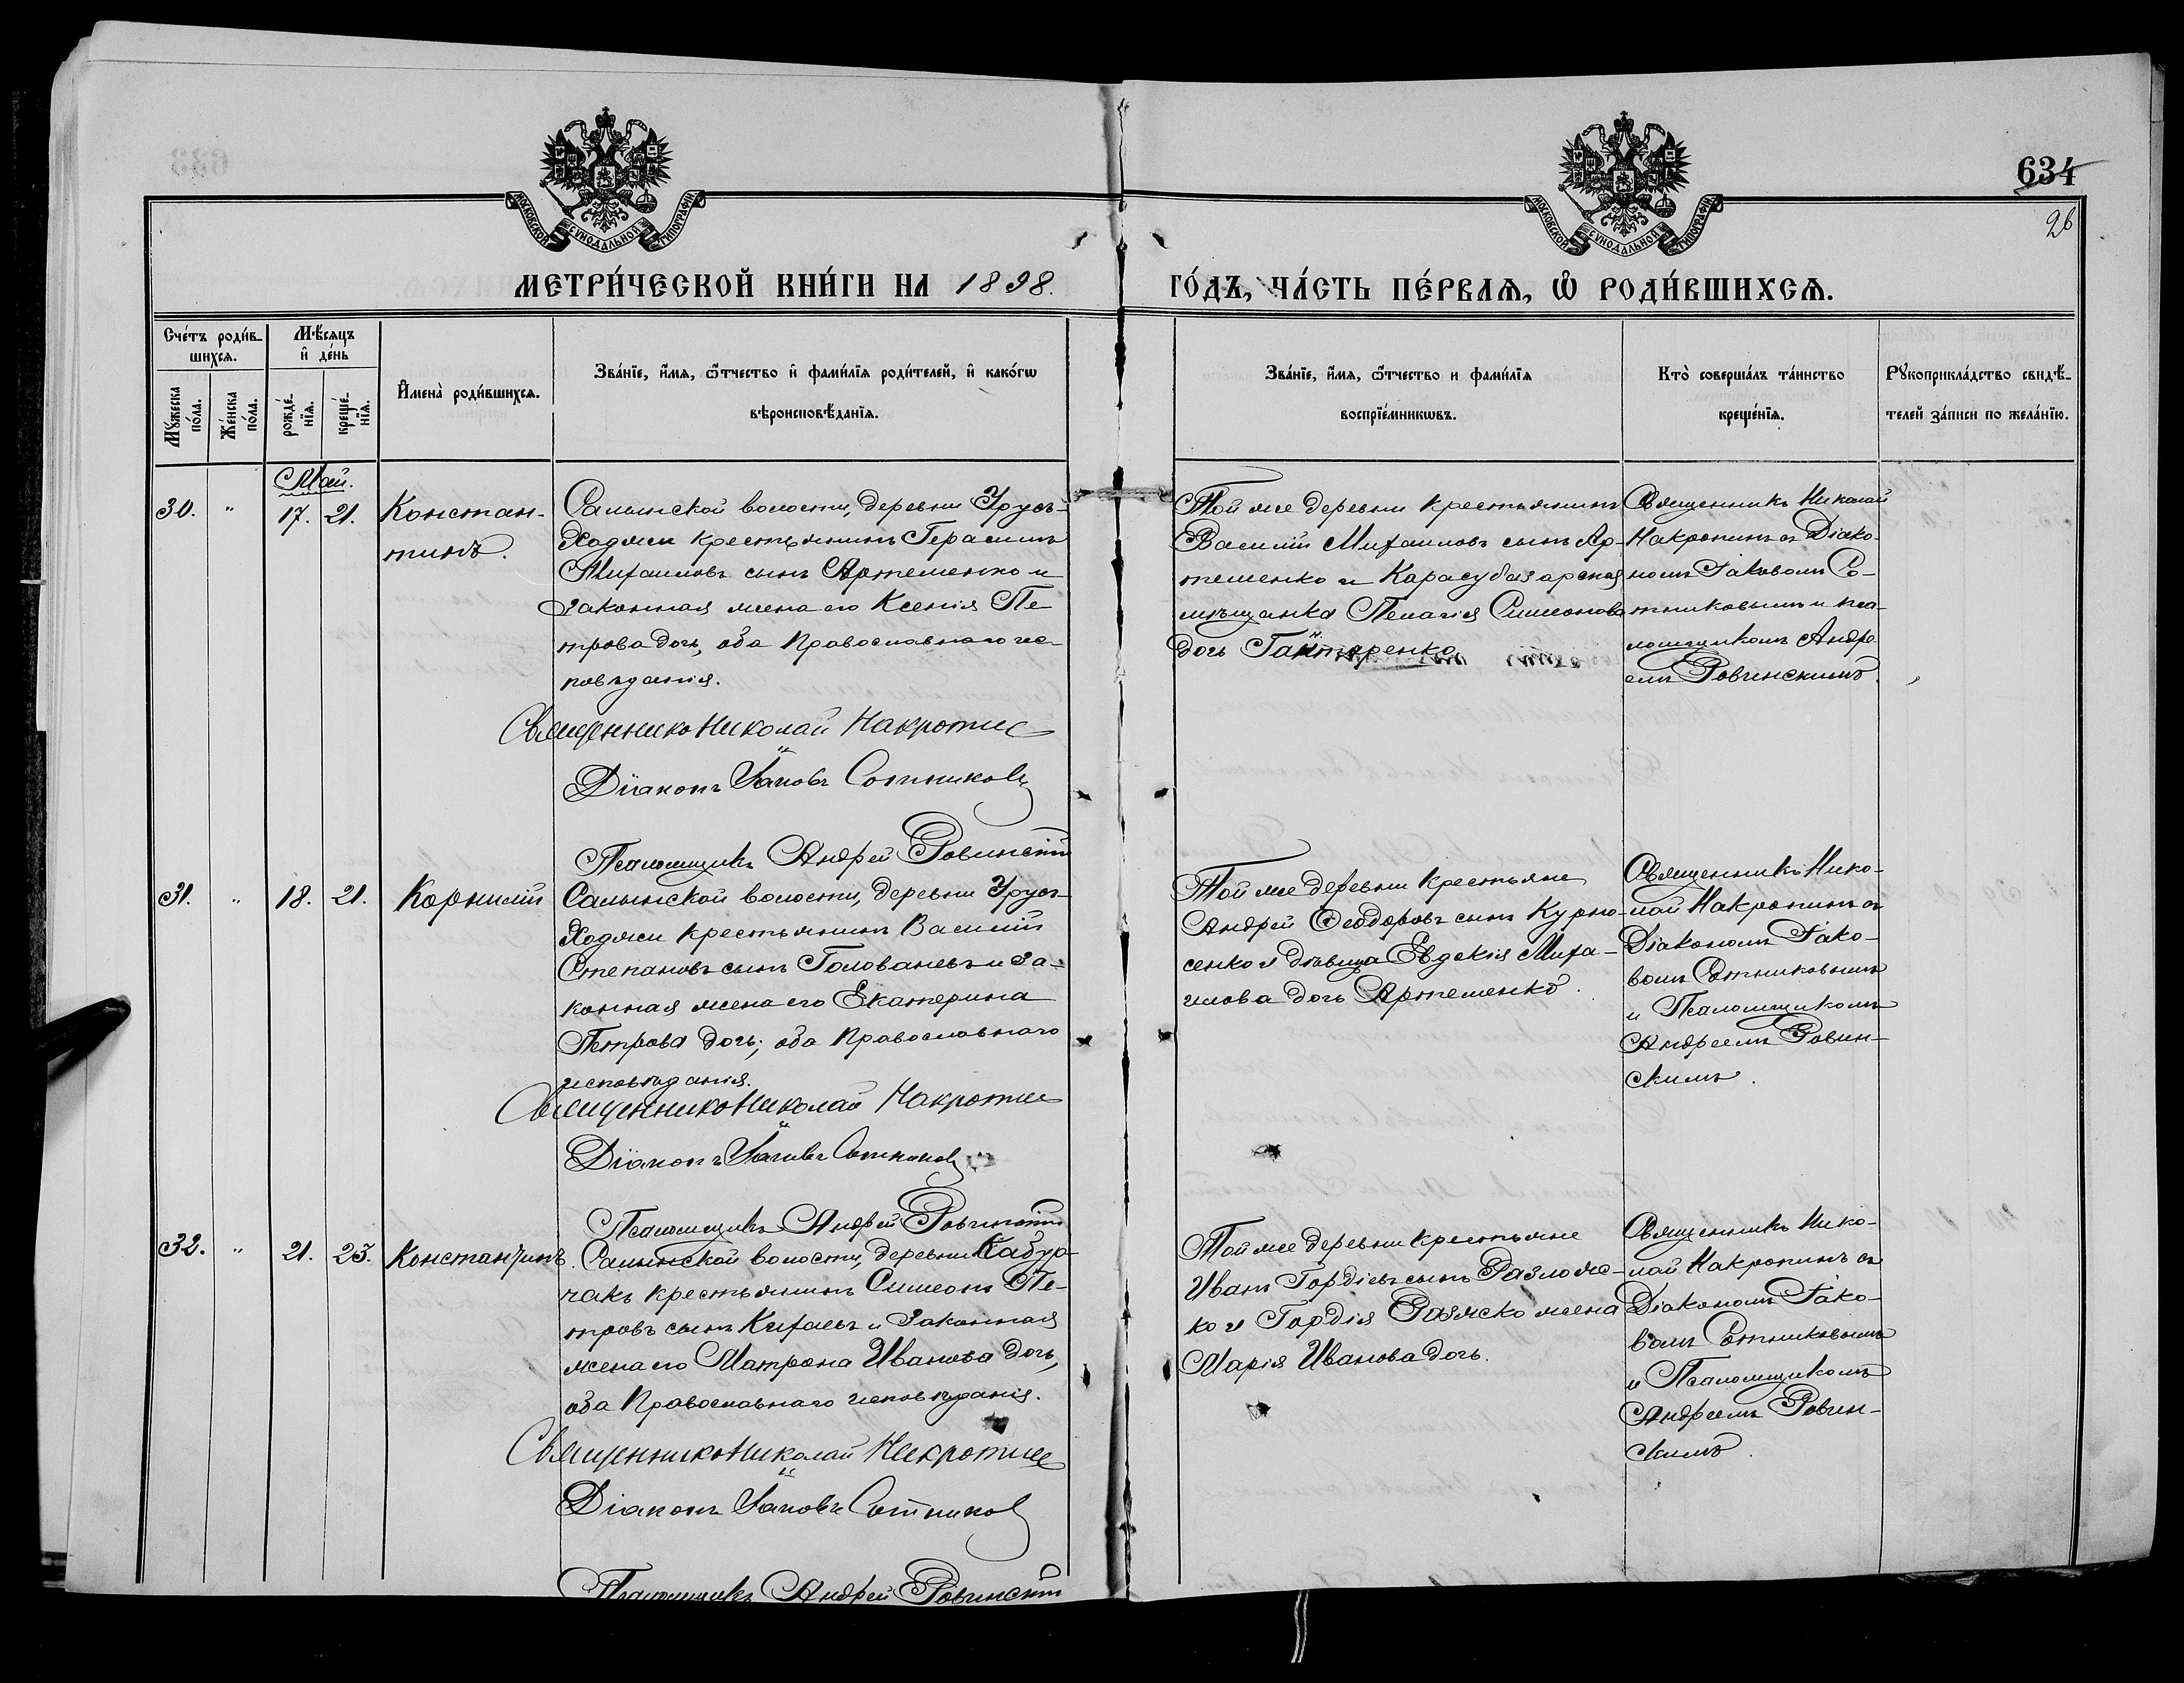 634
26
МОСКОВСКОЙ СѴНОДАЛЬНОЙ ТИПОГРАФІИ
МОСКОВСКОЙ СѴНОДАЛЬНОЙ ТИПОГРАФІИ
МЕТРИ́ЧЕСКОЙ КНИ́ГИ НА 1898.
ГО́ДЪ, ЧА́СТЬ ПЕ́РВАѦ, Ѡ РОДИ́ВШИХСѦ.
Сче́тъ роди́в-
шихсѧ.
Мꙋ́жеска по́ла.
Же́нска по́ла.
Мѣ́сѧцъ
и҆ де́нь
рожде́-
нїѧ.
креще́-
нїѧ.
И҆мена̀ роди́вшихсѧ.
Зва́нїе, и҆́мѧ, ѻ҆́тчество и҆ фами́лїѧ роди́телей, и҆ како́гѡ
вѣроисповѣ́данїѧ.
Зва́нїе, и҆́мѧ, ѻ҆́тчество и фами́лїѧ
воспрїе́мникѡвъ.
Кто̀ соверша́лъ та́инство
креще́нїѧ.
Рꙋкоприкла́дство свидѣ́-
телей за́писи по жела́нїю.
Май.
30. " 17. 21.
Констан-
тинъ.
Салынской волости, деревни Урусъ-
Ходжи крестьянинъ Герасимъ
Михаиловъ сынъ Артеменко и
законная жена его Ксенія Пе-
трова дочь, оба Православнаго ис-
повѣданія.
Священникъ Николай Накропин
Діаконъ Іаковъ Сотниковъ
Псаломщикъ Андрей Ровинскій
Той же деревни крестьянинъ
Василій Михаиловъ сынъ Ар-
теменко и Карасубазарская
мѣщанка Пелагія Симеонова
дочь Гайтаренко
Священникъ Николай
Накропинъ съ Діако-
номъ Іаковомъ Со-
тниковымъ и пса-
ломщикомъ Андре
емъ Ровинскимъ.
31. " 18. 21.
Корнилій
Салынской волости, деревни Урусъ-
Ходжи крестьянинъ Василій
Степановъ сынъ Голованевъ и за-
конная жена его Екатерина
Петрова дочь; оба Православнаго
исповѣданія.
Священникъ Николай Накропин
Діаконъ Іаковъ Сотниковъ
Псаломщикъ Андрей Ровинскій
Той же деревни крестьяне
Андрей Ѳеодоровъ сынъ Курно-
сенко и дѣвица Евдокія Миха-
илова дочь Артеменко.
Священникъ Нико-
лай Накропинъ съ
Діакономъ Іако-
вомъ Сотниковымъ
и Псаломщикомъ
Андреемъ Ровин-
скимъ.
32. " 21. 23.
Константинъ.
Салынской волости, деревни Кабур-
чакъ крестьянинъ Симеонъ Пе-
тровъ сынъ Кихаевъ и Законная
жена его Матрона Иванова дочь,
оба Православнаго исповѣданія.
Священникъ Николай Накропин
Діаконъ Іаковъ Сотниковъ
Псаломщикъ Андрей Ровинскій
Той же деревни крестьяне
Иванъ Гордіевъ сынъ
ко и Гордія жена
Марія Иванова дочь.
Священникъ Нико-
лай Накропинъ съ
Діакономъ Іако-
вомъ Сотниковымъ
и Псаломщикомъ
Андреемъ Ровин-
скимъ.